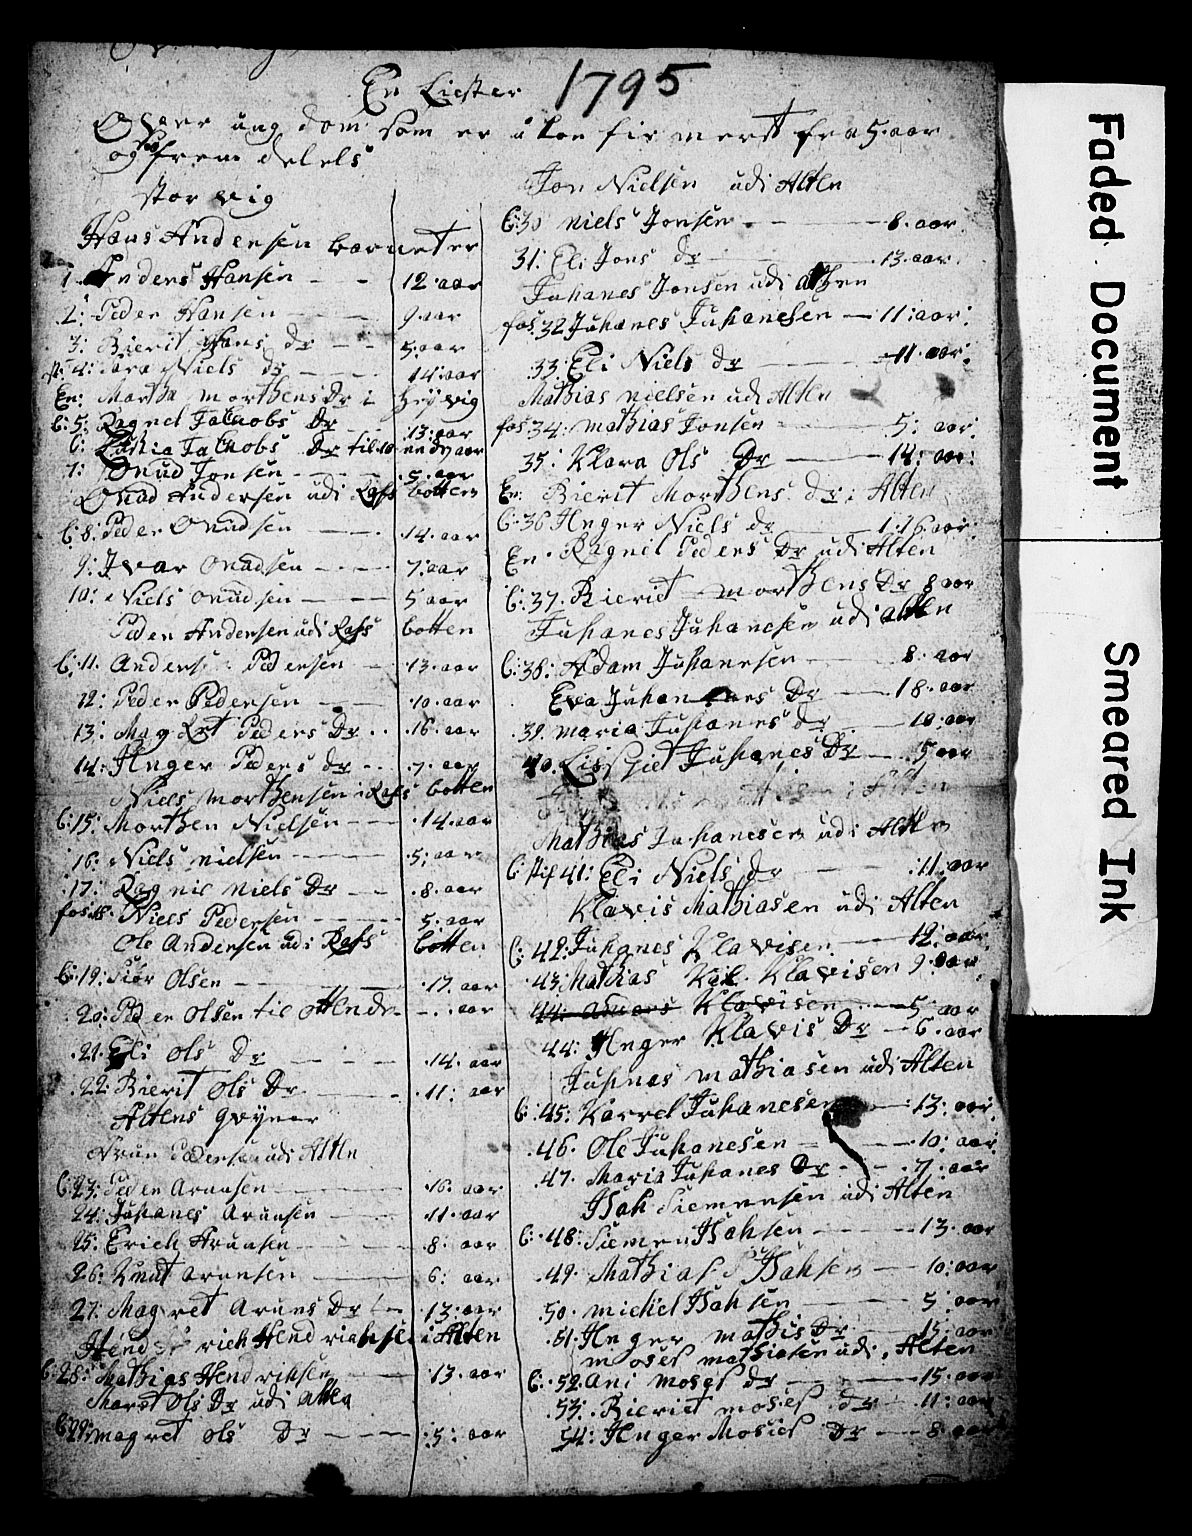 En Liester 1795
Over ung dom som er u kon fir mert fra 5. aar
og frem delels
stor vig
Hans Andersen barneter
1. Anders Hansen 12. aar
2: Peder Hansen 9. aar
3: Bierit Hans Dr 5: aar
4: Niels Dr 14: aar
En: Martha Morthens Dr i
b: 5: Ragnel Jachobs Dr 13: aar
6: Jachobs Dr til 10 aar
7: Onud Jonsen 5. aar
Onud Andersen udi Rafs botten
b: 8: Peder Onudsen 14. aar
9: Jvar Onudsen 7: aar
10: Niels Onudsen 5 aar
Peder Andersen udi Rafs botten
b: 11: Anders Pedersen 13. aar
12: Peder Pedersen 10. aar
13: Magret Peders Dr 16. aar
14: Anger Peders Dr 7. aar
Niels Morthensen i Rafs botten
b: 15: Morthen Nielsen 14. aar
16: Niels Nielsen 5: aar
17: Ragnil Niels Dr 8. aar
fos: 18. Niels Pedersen 5. aar
Ole Andersen udi Rafs botten
b: 19: Siør Olsen 17. aar
20: Peder Olsen til aar
21. Eli Ols Dr 14. aar
22: Bierit Ols Dr 11: aar
Altens
Arun Pedersen udi Alten
b: 23: Peder Arunsen 16. aar
24: Juhanes Arunsen 11. aar
25: Erich Arunsen 8: aar
26: Knut Arunsen 6: aar
27: Magret Aruns Dr 13. aar
Hendrich Hendrichsen i Alten
b: 28: Mathias Hendrichsen 13. aar
Maret Ols Dr udi Alten
b: 29: magret Ols Dr 5: aar
Jon Nielsen udi Alten
b: 30 Niels Jonsen 6. aar
31: Eli Jons Dr 13. aar
Juhanes Jonsen udi Alten
fos: 32 Juhanes Juhanesen 11: aar
33: Eli Niels Dr 11. aar
Mathias Nielsen udi Alten
fos: 34: Mathias Jonsen 5. aar
35: Klara Ols Dr 14: aar
En: Bierit Morthens Dr i Alten
b: 36 Anger Niels Dr 16. aar
En Ragnil Peders Dr udi Alten
b: 37. Bierit Morthens Dr 8 aar
Juhanes Juhanesen udi Alten
b: 38: Adam Juhanesen 8. aar
Eva Juhannes Dr 18. aar
39. Maria Juhanes Dr 10. aar
40. Lisbet Juhanes Dr 5 aar
i Alten
Mathias Juhanesen udi Alten
b: stif 41: Eli Niels Dr 11. aar
Klavis Mathiasen udi Alten
b: 42: Juhanes Klavisen 12: aar
43: Mathias Klavisen 9: aar
44: Klavisen 5: aar
44: Anger Klavis Dr 6. aar
Juhnas Mathiasen udi Alten
b: 45: Karrel Juhanesen 13: aar
46. Ole Juhanesen 10: aar
47. Maria Juhanes Dr 7: aar
Isak Siemensen udi Alten
b: 48: Siemen Isaksen 13. aar
49. Mathias Isaksen 10: aar
50. Michel Isaksen 5: aar
51. Anger Mathis Dr 15: aar
Moses Mathiasen udi Alten
b: 52. Ani Moses Dr 15. aar
53: Bieriet Moses Dr 11: aar
54: Anger Moses Dr 8. aar
Faded Document
Smeared Ink